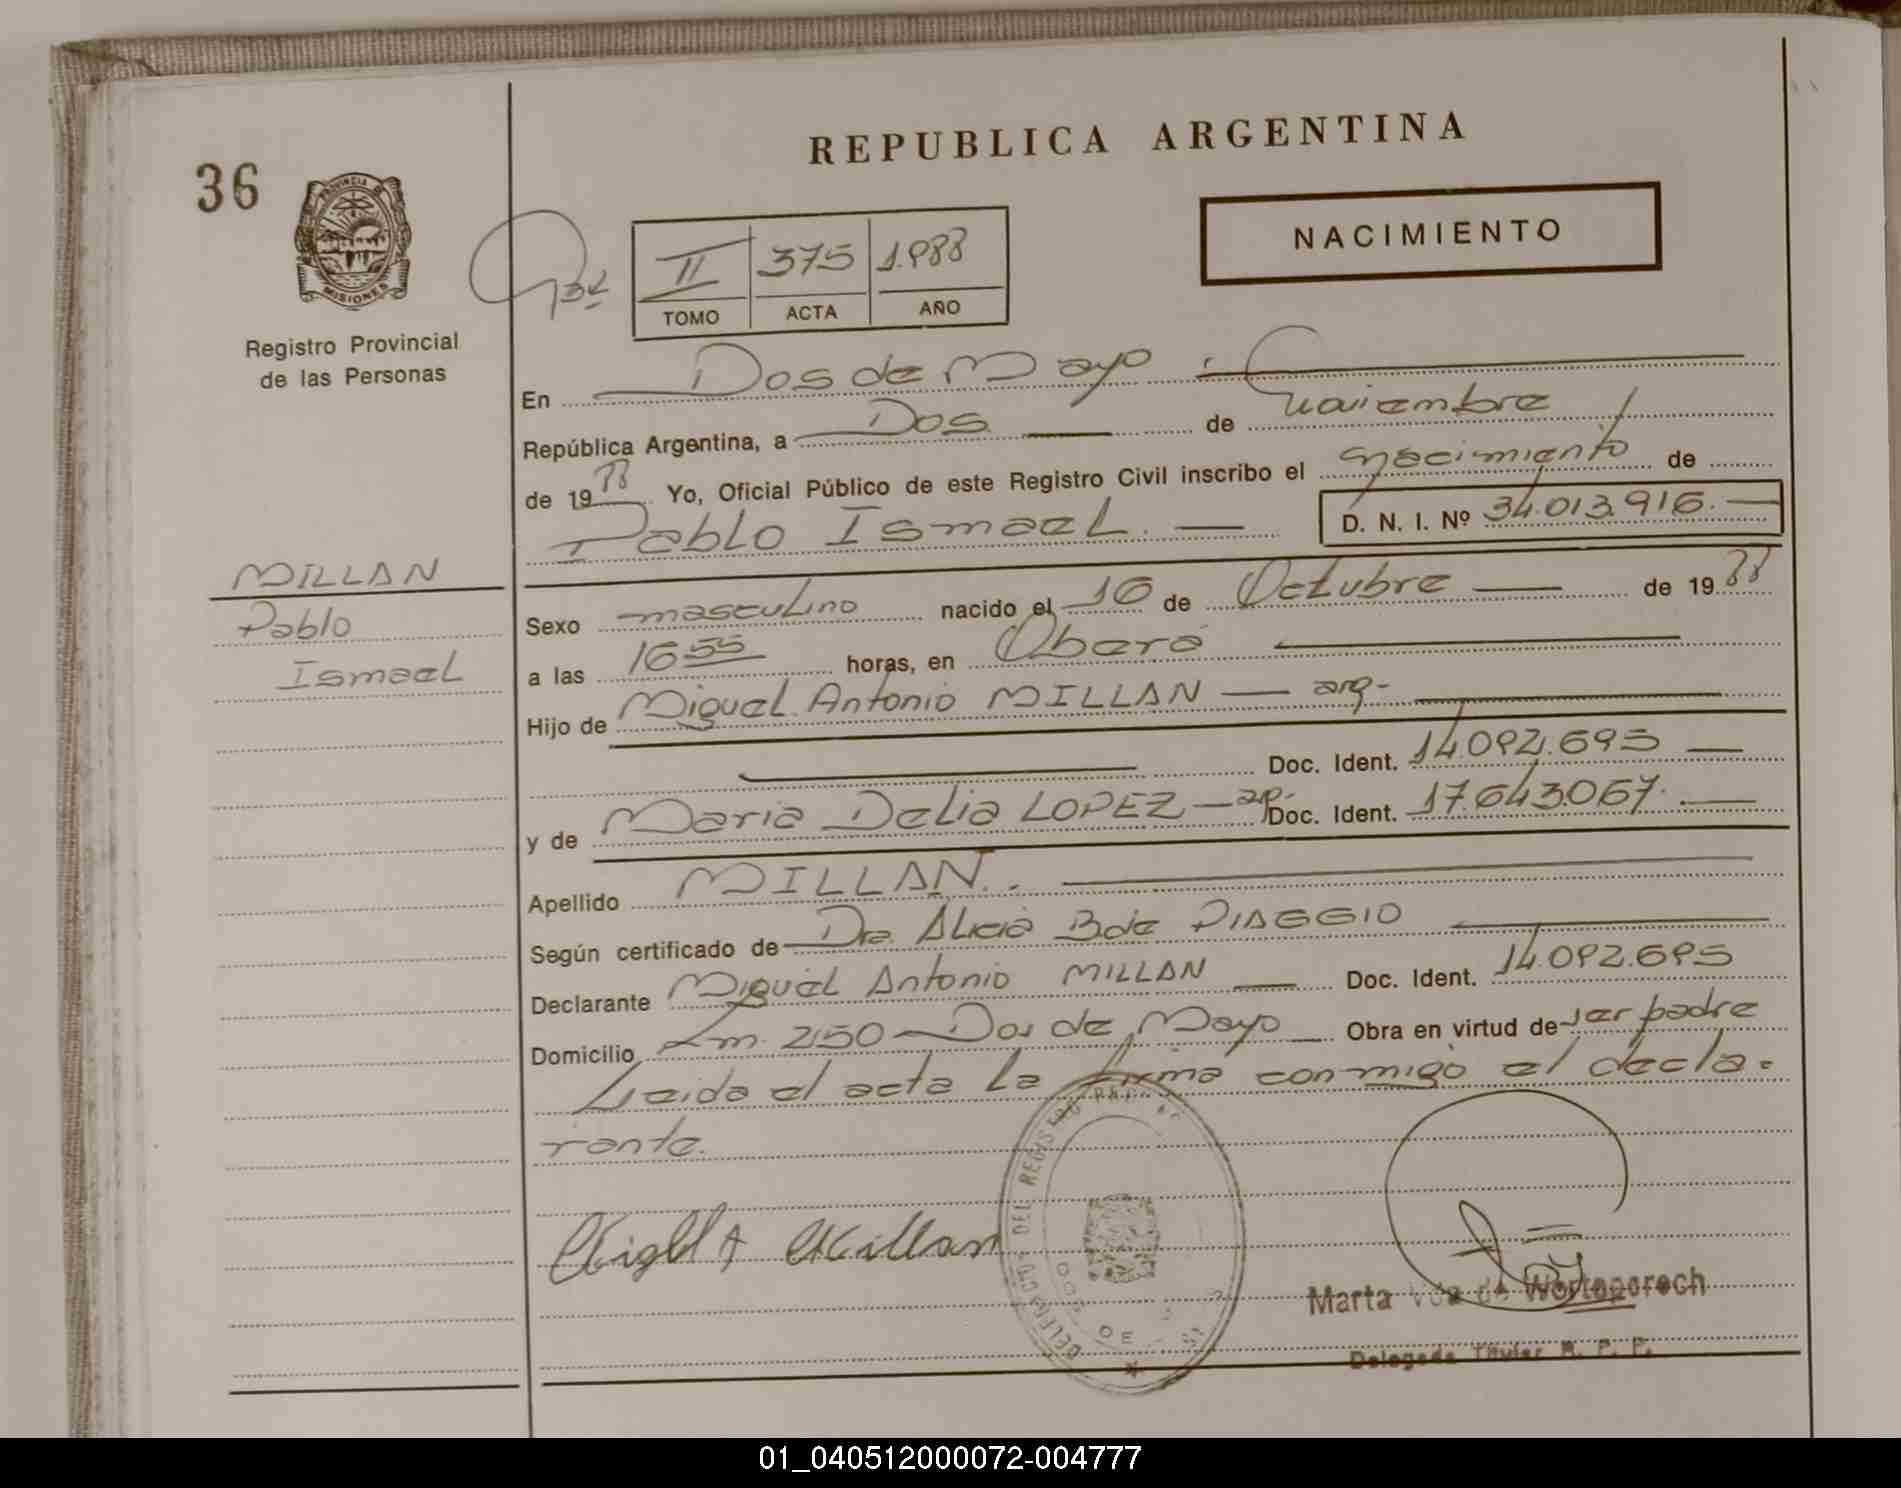 REPUBLICA ARGENTINA
36
PROVINCIA DE
MISIONES
Registro Provincial
de las Personas
II 375 1.988
TOMO ACTA AÑO
NACIMIENTO
En Dos de Mayo
República Argentina, a Dos de Noviembre
de 1988 Yo, Oficial Público de este Registro Civil inscribo el Nacimiento de
Pablo Ismael. D. N. I. Nº 34.013.916.
MILLAN
Pablo
Ismael
Sexo masculino nacido el 16 de Octubre de 1988
a las 16 55 horas, en Oberá
Hijo de Miguel Antonio MILLAN — arg-
Doc. Ident. 14.092.695
y de Maria Delia LOPEZ — arg- Doc. Ident. 17.643.067.
Apellido MILLAN.
Según certificado de Dra. Alicia B. de PIAGGIO
Declarante Miguel Antonio MILLAN Doc. Ident. 14.092.695
Domicilio Km. 250 - Dos de Mayo Obra en virtud de ser padre
Leida el acta la firma conmigo el decla-
rante.
DEL REGISTRO
Marta Vda de
Delegada Titular R. P. P.
01_040512000072-004777